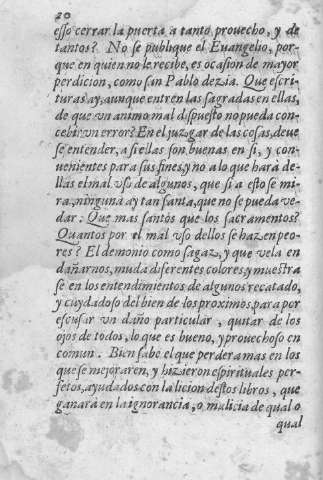 20
esso cerrar la puerta a tanto prouecho, y de
tantos? No se publique el Euangelio, por-
que en quien no le recibe, es ocasion de mayor
perdicion, como san Pablo dezia. Que escri-
turas ay, aunque entren las sagradas en ellas,
de que vn animo mal dispuesto no pueda con-
cebir vn error? En el juzgar de las cosas, deue
se entender, a si ellas son buenas en si, y con-
uenientes para sus fines, y no a lo que hara de-
llas el mal vso de algunos, que si a esto se mi-
ra, ninguna ay tan santa, que no se pueda ve-
dar: Que mas santos que los sacramentos?
Quantos por el mal vso dellos se hazen peo-
res? El demonio como sagaz, y que vela en
dañarnos, muda diferentes colores, y muestra
se en los entendimientos de algunos recatado,
y cuydadoso del bien de los proximos, para por
escusar vn daño particular, quitar de los
ojos de todos, lo que es bueno, y prouechoso en
comun. Bien sabe el que perdera mas en los
que se mejoraren, y hizieron espirituales per-
fetos, ayudados con la licion destos libros, que
ganara en la ignorancia, o malicia de qual o
qual